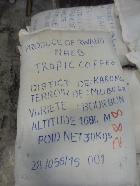 PRODUCE OF RWANDA
NAEB
TROPIC COFFEE
DISTRICT DE KARONGI
TERROIR DE MUBUGA
VARIETE : BOURBON
ALTITUDE 1695 M
POID NET 30KGS
28/055/15 001